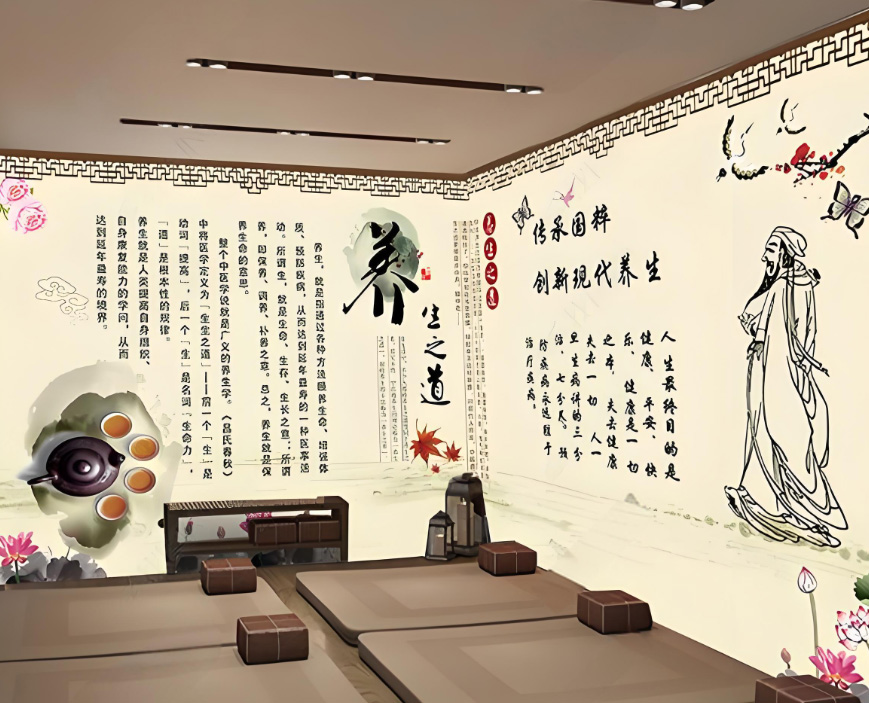 养
生之道
养生，就是指通过各种方法颐养生命、增强体
质、预防疾病，从而达到延年益寿的一种医事活
动。所谓生，就是生命、生存、生长之意；所谓
养，即保养、调养、补养之意。总之，养生就是保
养生命的意思。
整个中医学说就是广义的养生学。《吕氏春秋》
中将医学定义为「生生之道」——前一个「生」是
动词「提高」，后一个「生」是名词「生命力」，
「道」是根本性的规律。
养生就是人类提高自身组织、
自身康复能力的学问，从而
达到延年益寿的境界。
养生之道
传承国粹
创新现代养生
人生最终目的是
健康、平安、快
乐、健康是一切
之本，失去健康
失去一切 人一
旦生病讲的三分
治，七分养。预
防疾病永远胜于
治疗疾病。